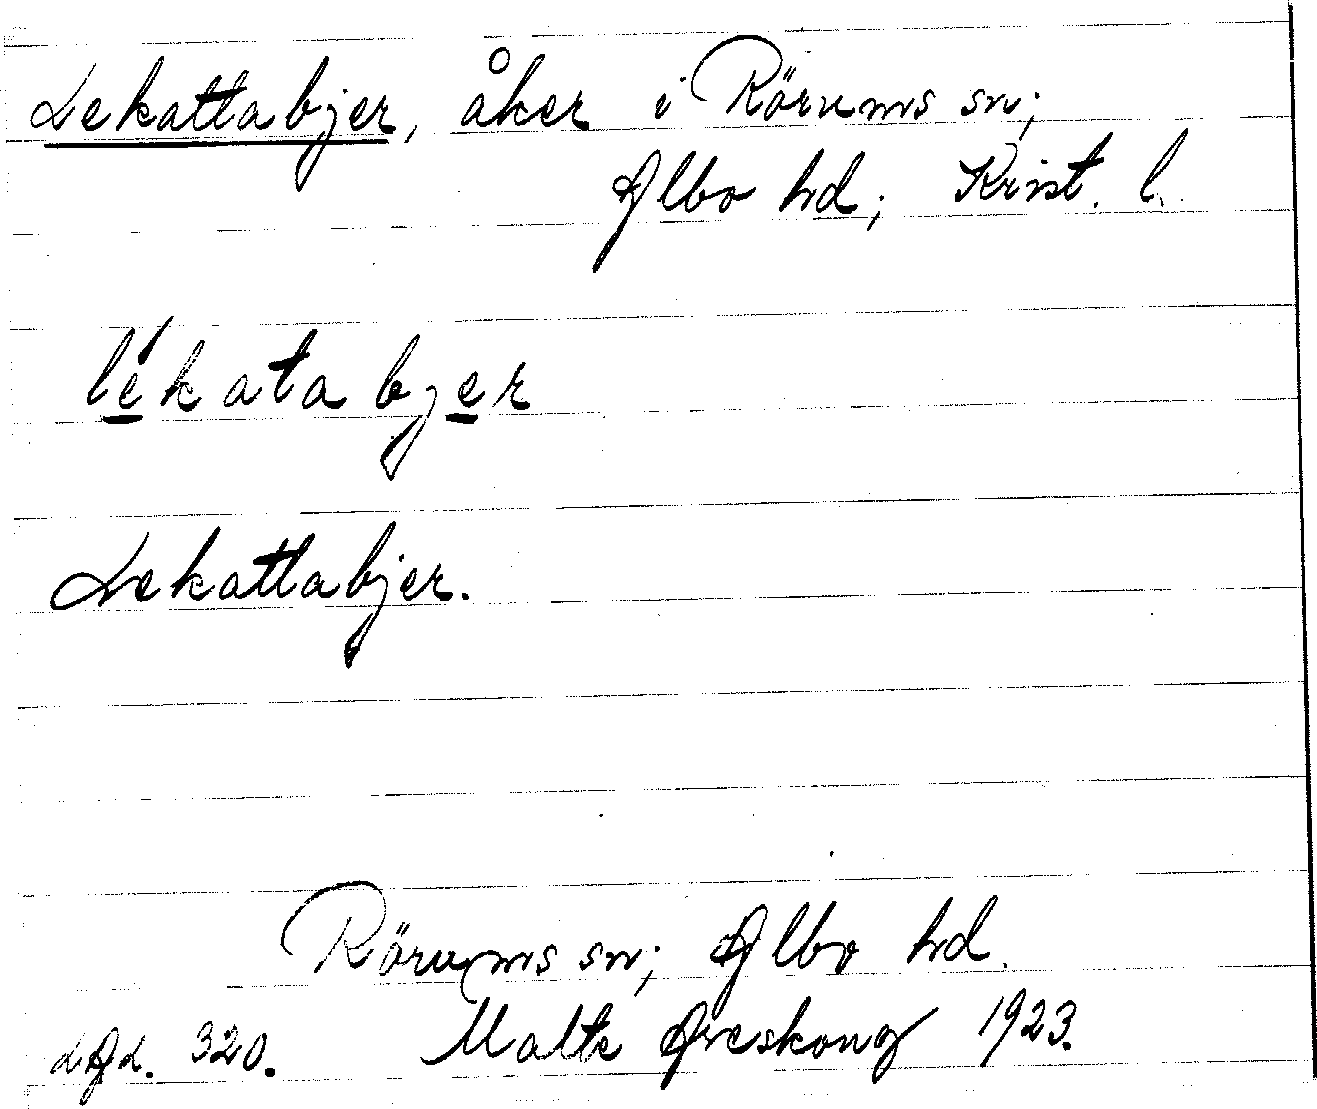 Lekattabjer, åker i Rörums sn;
Albo hd; Krist. l.
lékatabjer
Lekattabjer.
Rörums sn; Albo hd.
LAL. 320. Malte Areskoug 1923.